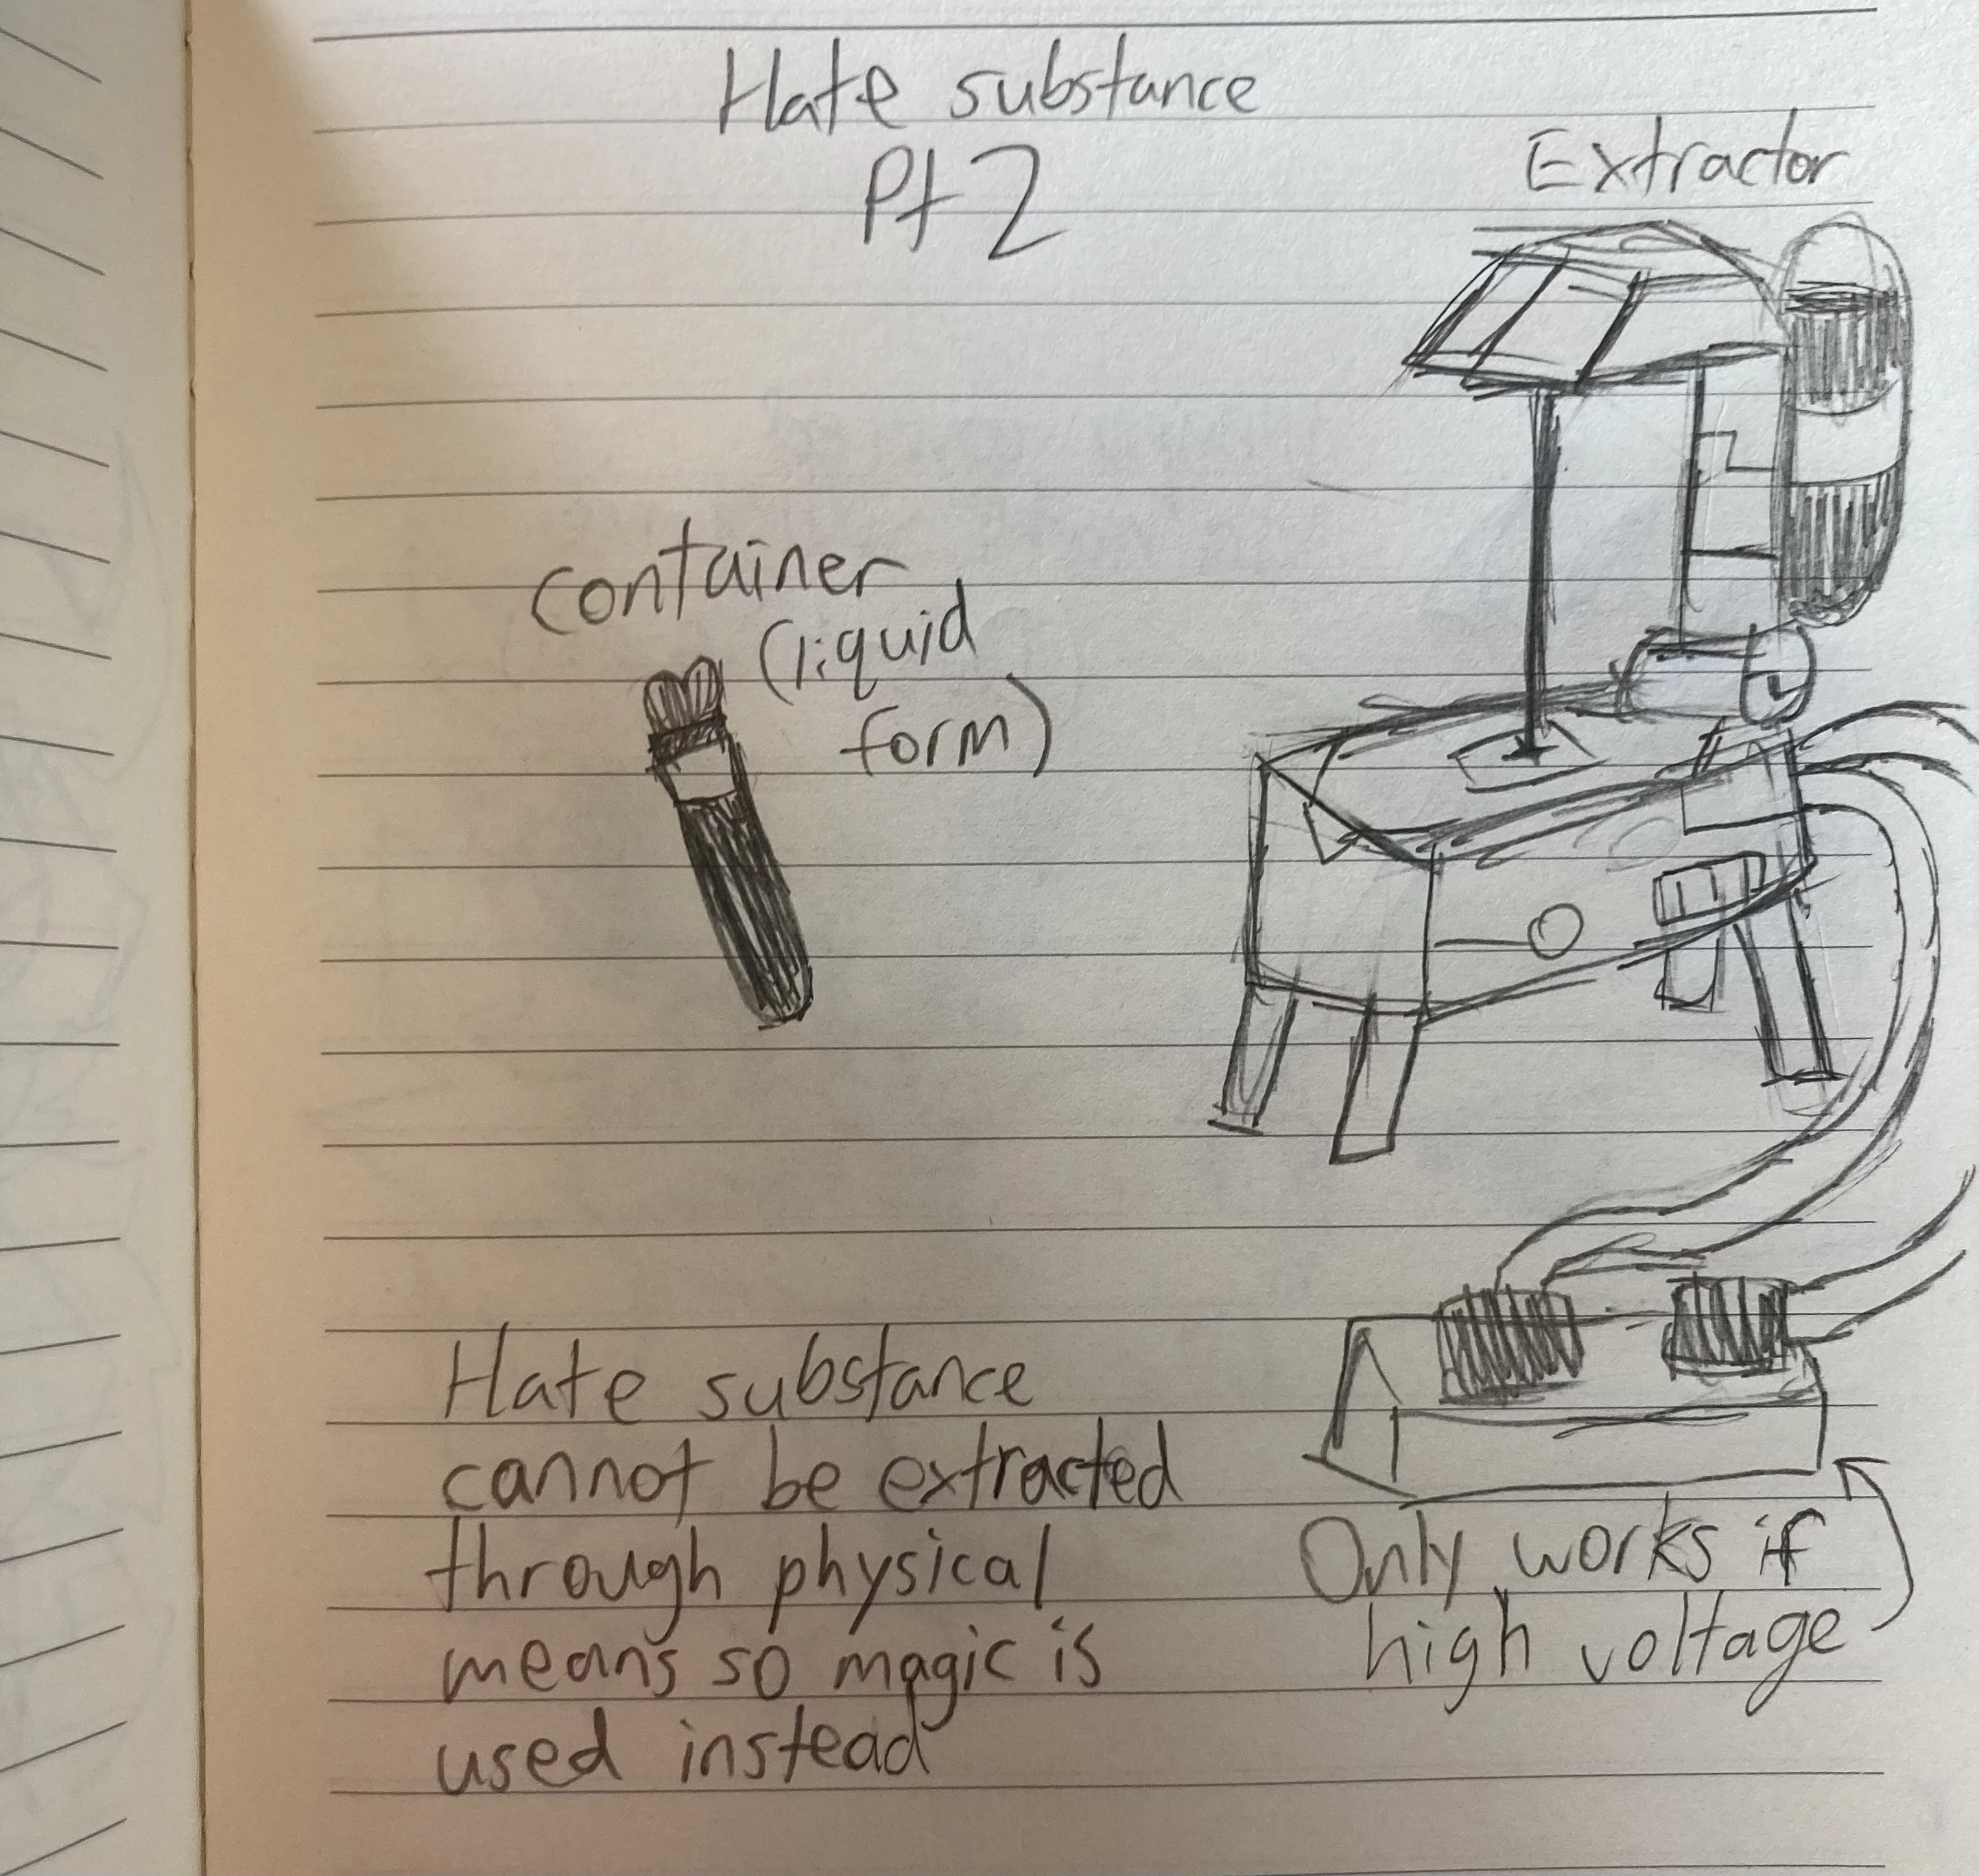 Hate substance
Pt 2
Extractor
container
(liquid
form)
Hate substance
cannot be extracted
through physical
means so magic is
used instead
Only works if
high voltage